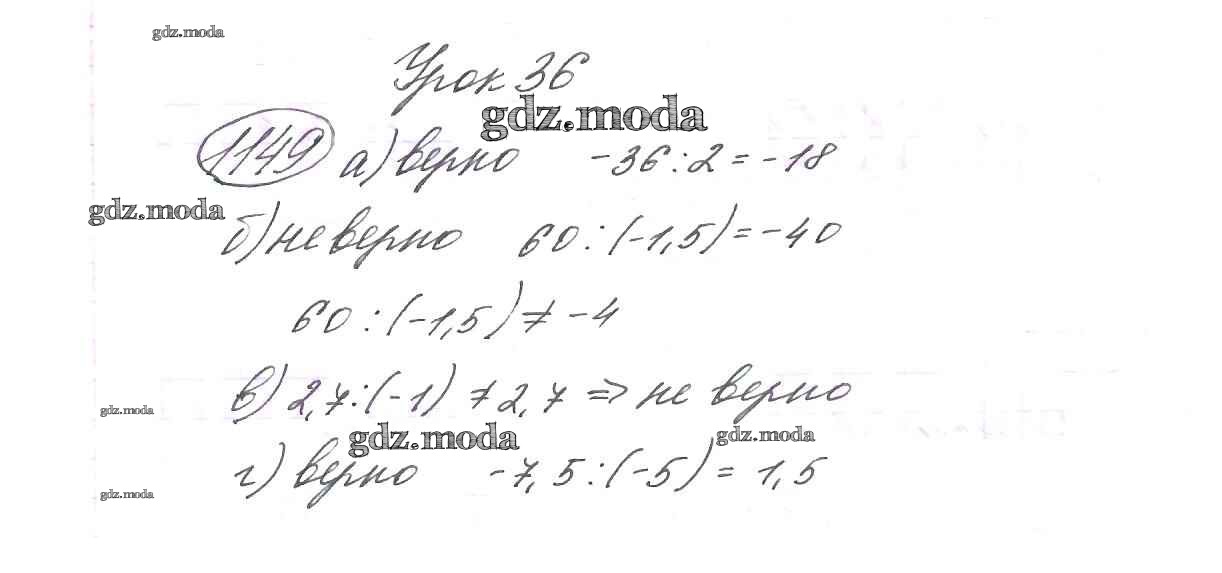 gdz.moda
Урок 36
gdz.moda
1149 а) верно -36 : 2 = -18
gdz.moda
б) не верно 60 : (-1,5) = -40
60 : (-1,5) ≠ -4
в) 2,7 : (-1) ≠ 2,7 ⇒ не верно
gdz.moda
gdz.moda gdz.moda
г) верно -7,5 : (-5) = 1,5
gdz.moda